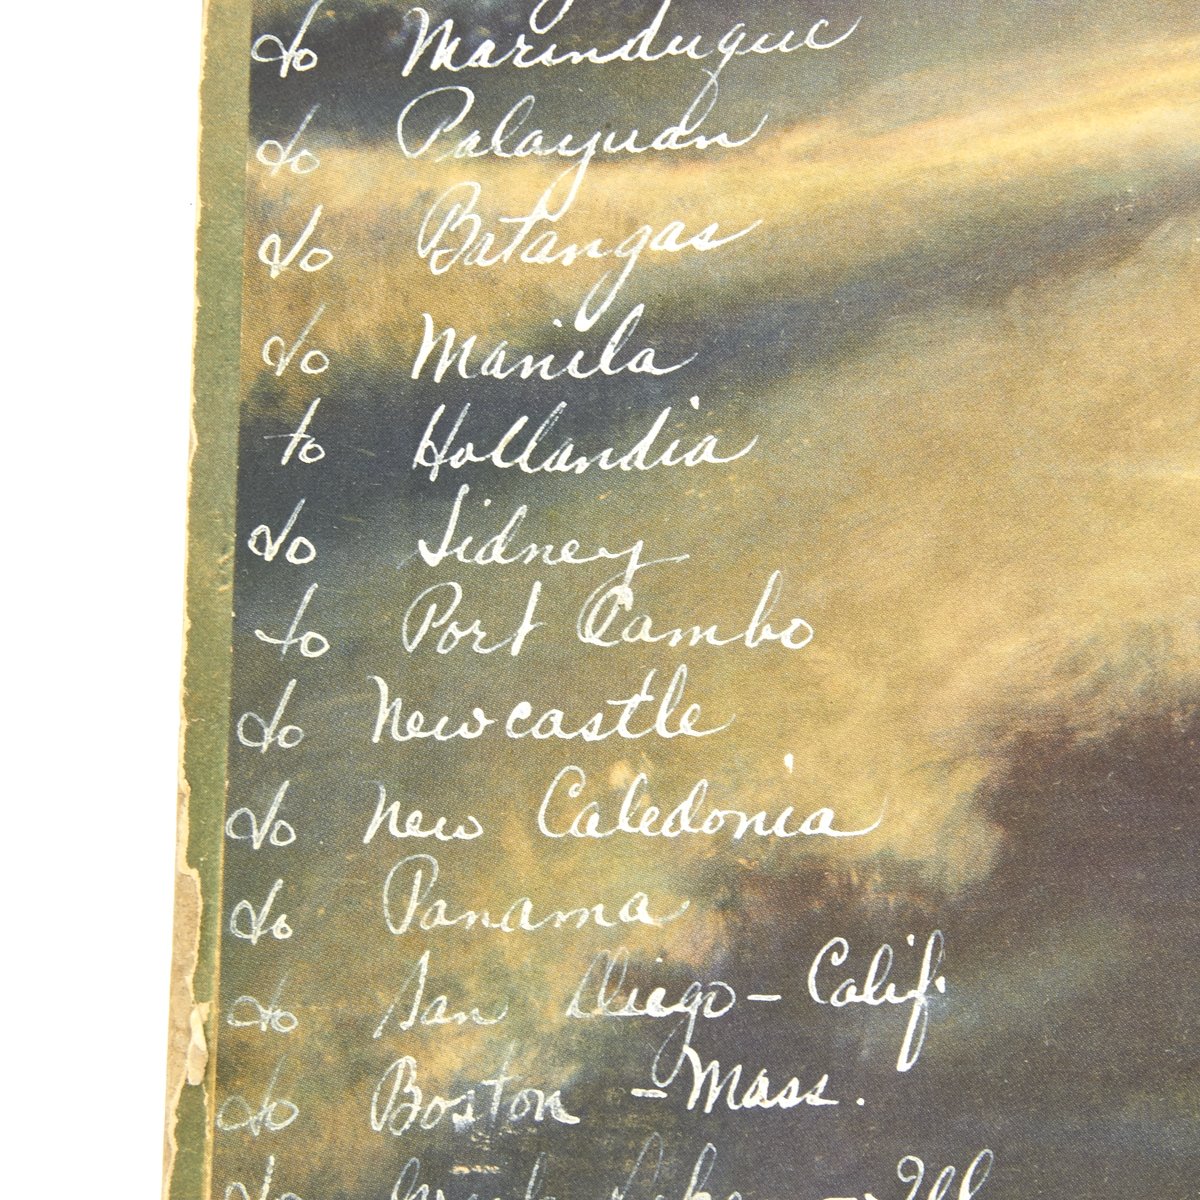 to Marinduque
to Palayuan
to Batangas
to Manila
to Hollandia
to Sidney
to Port Cambo
to Newcastle
to New Caledonia
to Panama
to San Diego - Calif.
to Boston - Mass.
to Lake - Ill